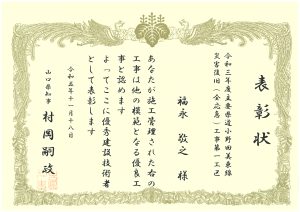 表彰状
令和三年度主要県道小野田美東線
災害復旧(全応急)工事第一工区
福永 敬之 様
あなたが施工管理された右の
工事は他の模範となる優良工
事と認めます
よってここに優秀建設技術者
として表彰します
令和五年十一月十八日
山口県知事 村岡嗣政